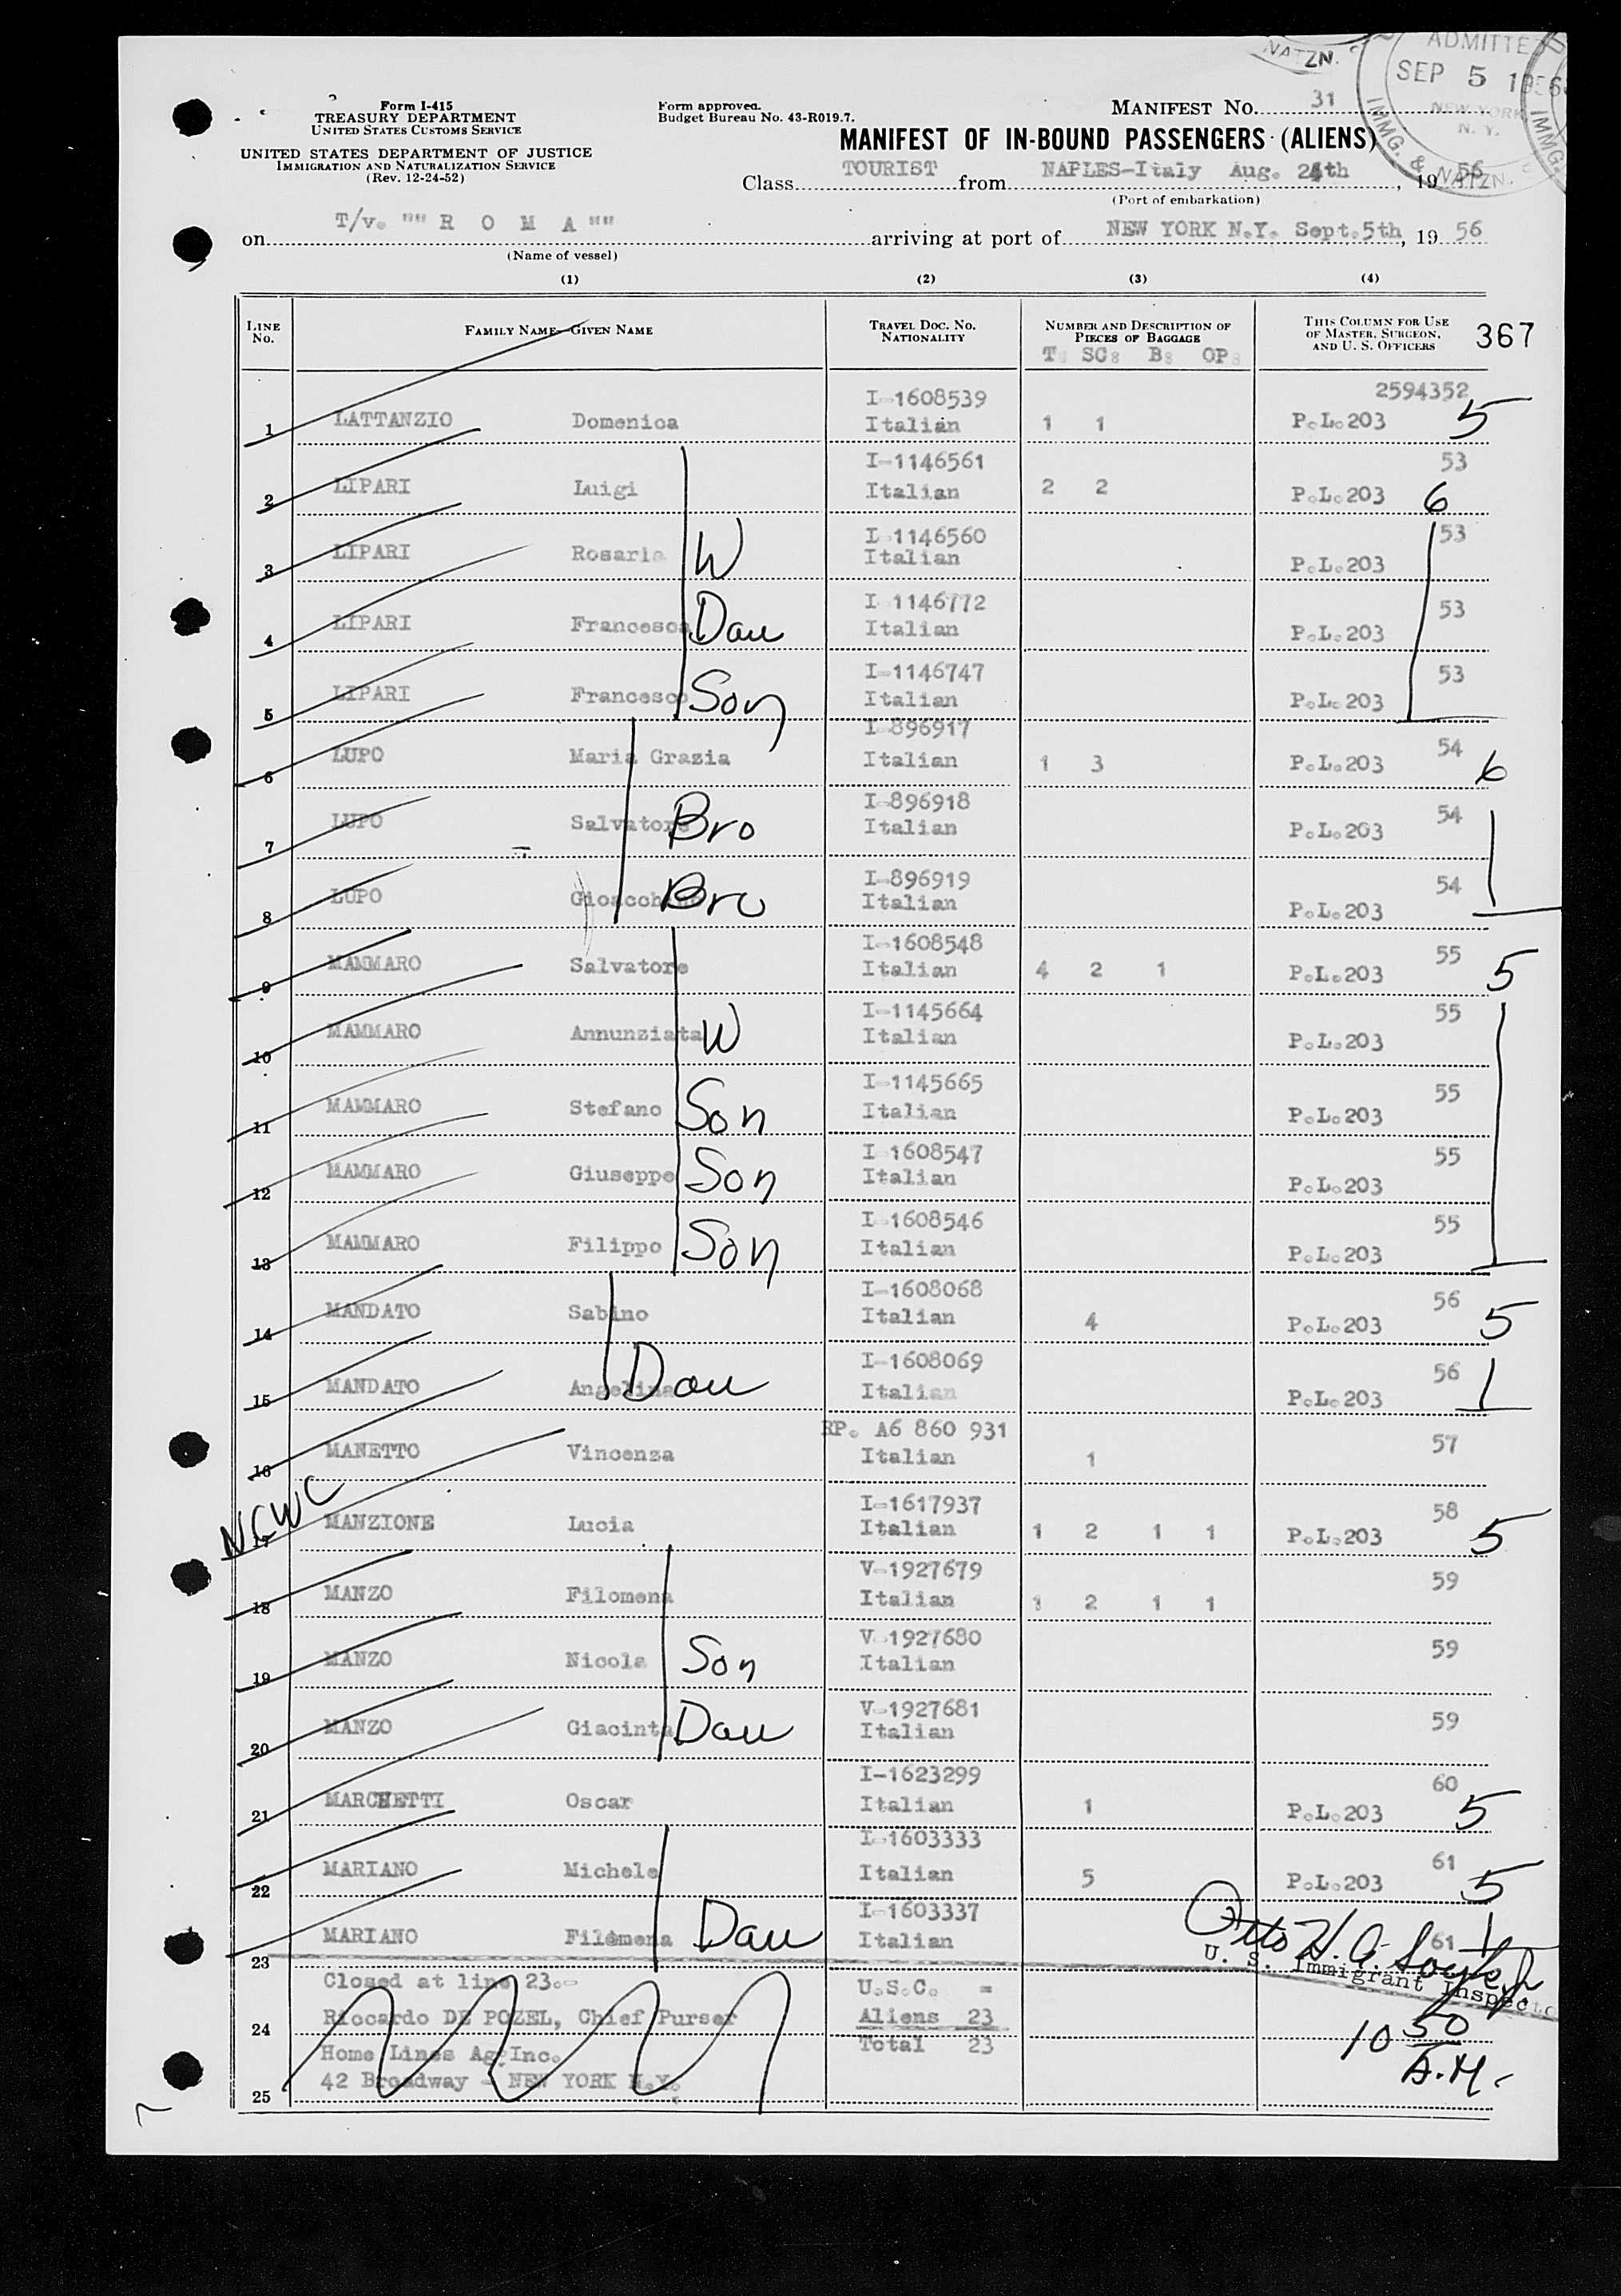 NATZN.
ADMITTED
SEP 5 1956
NEW YORK
N. Y.
IMMG. & NATZN.
IMMG.
Form I-415
TREASURY DEPARTMENT
UNITED STATES CUSTOMS SERVICE
UNITED STATES DEPARTMENT OF JUSTICE
IMMIGRATION AND NATURALIZATION SERVICE
(Rev. 12-24-52)
Form approved.
Budget Bureau No. 43-R019.7.
MANIFEST NO. 31
MANIFEST OF IN-BOUND PASSENGERS (ALIENS)
Class TOURIST from NAPLES-Italy Aug. 24th, 19 56
(Port of embarkation)
on T/v. "" R O M A "" arriving at port of NEW YORK N.Y. Sept.5th, 19 56
(Name of vessel)
(1) (2) (3) (4)
LINE No. FAMILY NAME—GIVEN NAME TRAVEL DOC. NO. NATIONALITY NUMBER AND DESCRIPTION OF PIECES OF BAGGAGE THIS COLUMN FOR USE OF MASTER, SURGEON, AND U. S. OFFICERS 367
T: SC: B: OP:
I-1608539 2594352
1 LATTANZIO Domenica Italian 1 1 P.L.203 5
I-1146561 53
2 LIPARI Luigi Italian 2 2 P.L.203 6
I-1146560 53
3 LIPARI Rosaria W Italian P.L.203
I-1146772 53
4 LIPARI Francesca Dau Italian P.L.203
I-1146747 53
5 LIPARI Francesco Son Italian P.L.203
I-896917 54
6 LUPO Maria Grazia Italian 1 3 P.L.203 6
I-896918 54
7 LUPO Salvatore Bro Italian P.L.203
I-896919 54
8 LUPO Gioacchino Bro Italian P.L.203
I-1608548 55
9 MAMMARO Salvatore Italian 4 2 1 P.L.203 5
I-1145664 55
10 MAMMARO Annunziata W Italian P.L.203
I-1145665 55
11 MAMMARO Stefano Son Italian P.L.203
I-1608547 55
12 MAMMARO Giuseppe Son Italian P.L.203
I-1608546 55
13 MAMMARO Filippo Son Italian P.L.203
I-1608068 56
14 MANDATO Sabino Italian 4 P.L.203 5
I-1608069 56
15 MANDATO Angelina Dau Italian P.L.203
RP. A6 860 931 57
16 MANETTO Vincenza Italian 1
NCWC
I-1617937 58
17 MANZIONE Lucia Italian 1 2 1 1 P.L.203 5
V-1927679 59
18 MANZO Filomena Italian 1 2 1 1
V-1927680 59
19 MANZO Nicola Son Italian
V-1927681 59
20 MANZO Giacinta Dau Italian
I-1623299 60
21 MARCHETTI Oscar Italian 1 P.L.203 5
I-1603333 61
22 MARIANO Michele Italian 5 P.L.203 5
I-1603337
23 MARIANO Filomena Dau Italian 61
Otto H. A.
U. S. Immigrant Inspector
Closed at line 23.- U.S.C. =
24 Riccardo DE POZEL, Chief Purser Aliens 23
Home Lines Ag. Inc. Total 23
25 42 Broadway - NEW YORK N.Y.
10 50
A.M.